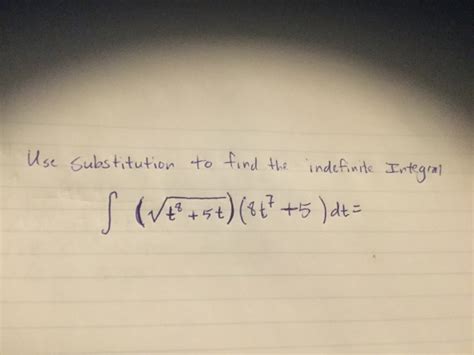 Use substitution to find the indefinite Integral
∫ (√(t⁸ + 5t)) (8t⁷ + 5) dt =